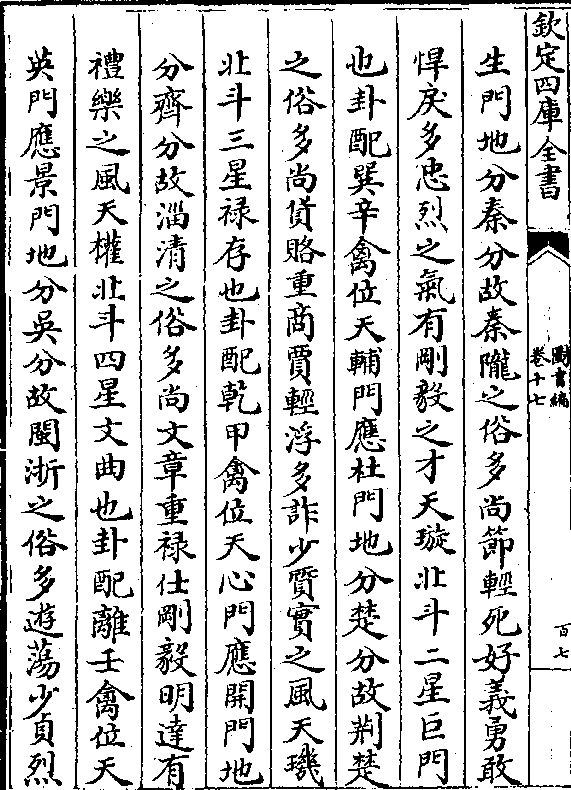 欽定四庫全書
圖書編
卷十七
百七
生門地分秦分故秦隴之俗多尚節輕死好義勇敢
悍戾多忠烈之氣有剛毅之才天璇北斗二星巨門
也卦配巽辛禽位天輔門應杜門地分楚分故荆楚
之俗多尚貨賂重商賈輕浮多詐少質實之風天璣
北斗三星禄存也卦配乾甲禽位天心門應開門地
分齊分故淄清之俗多尚文章重禄仕剛毅明達有
禮樂之風天權北斗四星文曲也卦配離壬禽位天
英門應景門地分吳分故閩浙之俗多遊蕩少貞烈